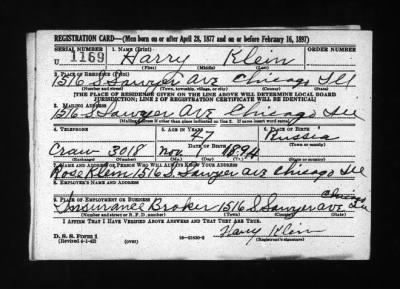 REGISTRATION CARD—(Men born on or after April 28, 1877 and on or before February 16, 1897)
SERIAL NUMBER 1. NAME (Print) ORDER NUMBER
U 1169 Harry Klein
(First) (Middle) (Last)
2. PLACE OF RESIDENCE (Print)
1516 S Sawyer Ave Chicago Ill
(Number and street) (Town, township, village, or city) (County) (State)
[THE PLACE OF RESIDENCE GIVEN ON THE LINE ABOVE WILL DETERMINE LOCAL BOARD
JURISDICTION; LINE 2 OF REGISTRATION CERTIFICATE WILL BE IDENTICAL]
3. MAILING ADDRESS
1516 S Sawyer Ave Chicago Ill
[Mailing address if other than place indicated on line 2. If same insert word same]
4. TELEPHONE 5. AGE IN YEARS 6. PLACE OF BIRTH
47 Russia
DATE OF BIRTH (Town or county)
Craw 3018 Nov 1894
(State or country)
7. NAME AND ADDRESS OF PERSON WHO WILL ALWAYS KNOW YOUR ADDRESS
Rose Klein 1516 S. Sawyer Ave Chicago Ill
8. EMPLOYER'S NAME AND ADDRESS
9. PLACE OF EMPLOYMENT OR BUSINESS
Insurance Broker 1516 S Sawyer Ave Chicago Ill
(Number and street or R. F. D. number) (Town) (County) (State)
I AFFIRM THAT I HAVE VERIFIED ABOVE ANSWERS AND THAT THEY ARE TRUE.
Harry Klein
D. S. S. Form 1
(Revised 4-1-42) (over) 16—21630-2 (Registrant's signature)